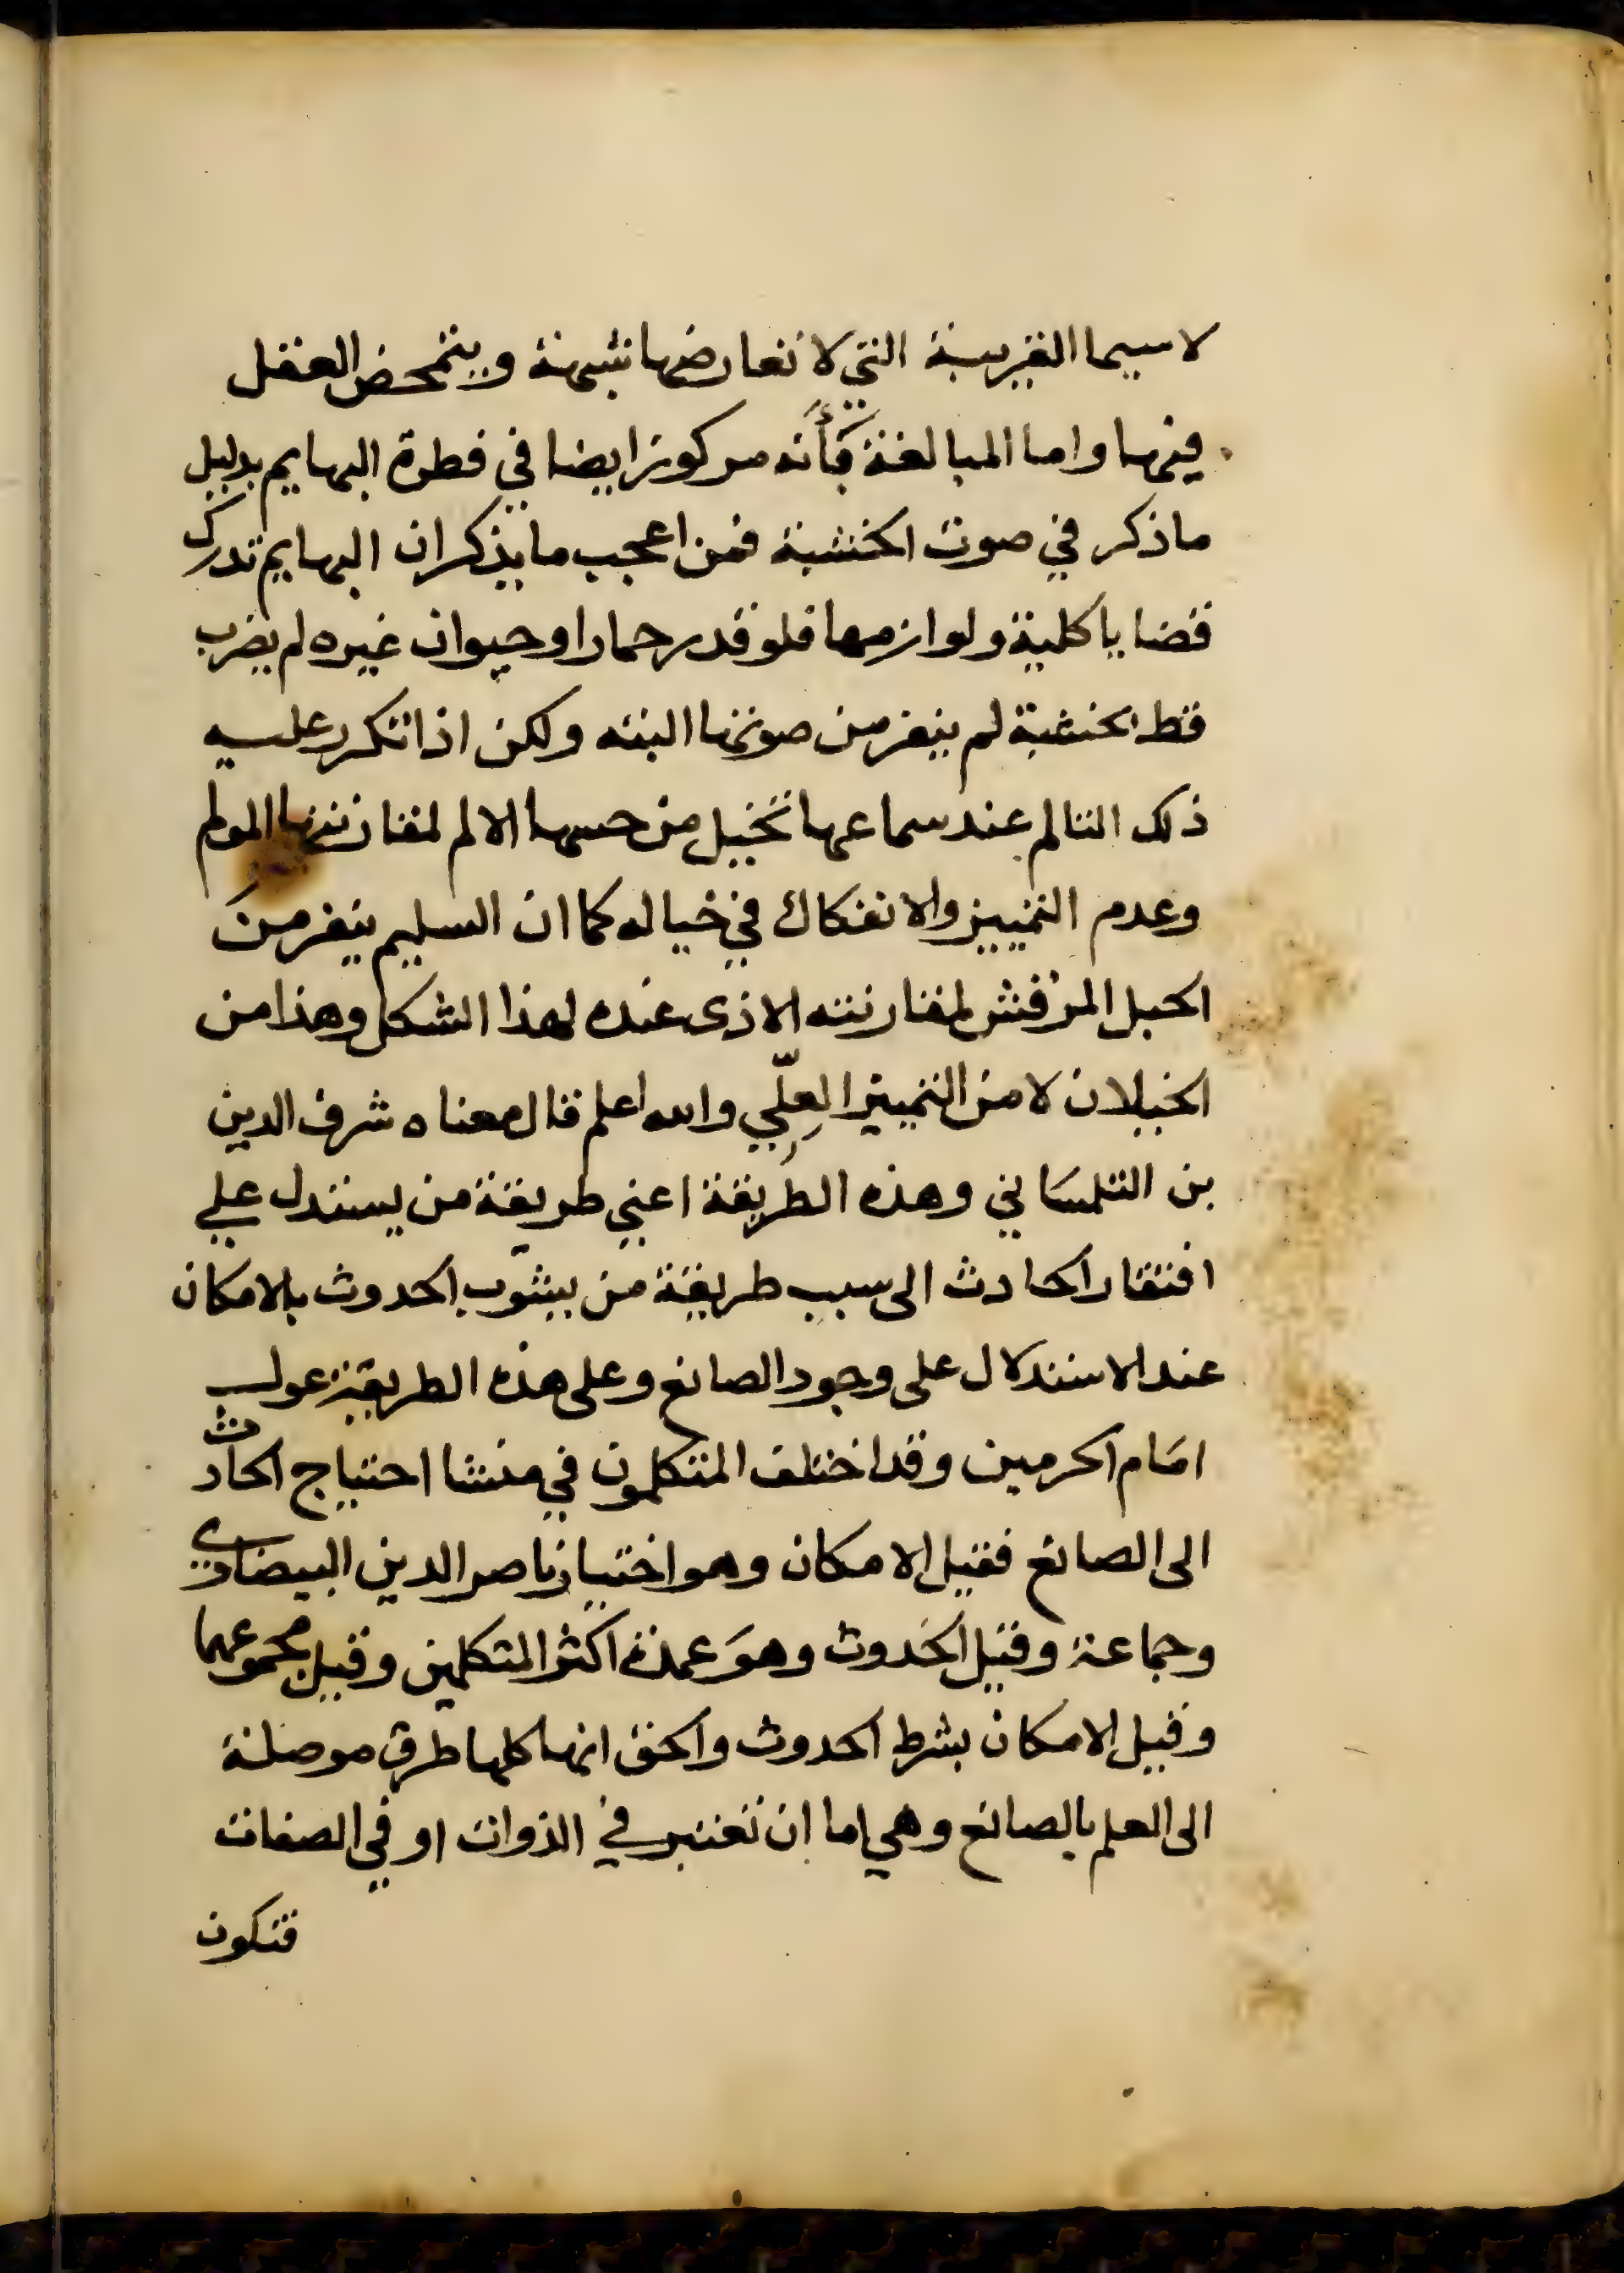 لا سيما القريبة التي لا تعارضها شبهة ويتمحض العقل
فيها واما المبالغة بأنه مركوز ايضا في فطرة البهايم بدليل
ما ذكر في صوت الخشبة فمن اعجب ما يذكر ان البهايم تدرك
قضايا كلية ولوازمها فلو قدر حمارا او حيوان غيره لم يضرب
قط بخشبة لم ينفر من صوتها البته ولكن اذا تكرر عليه
ذلك التالم عند سماعها تخيل من حسها الالم لمقارنتها المولم
وعدم التمييز والانفكاك في خياله كما ان السليم ينفر من
الحبل المرقش لمقارنته الاذى عنده لهذا الشكل وهذا من
الخيلان لا من التمييز العِلّي والله اعلم قال معناه شرف الدين
بن التلمساني وهذه الطريقة اعني طريقة من يستدل علي
افتقار الحادث الى سبب طريقة من يشوّب الحدوث بالامكان
عند الاستدلال على وجود الصانع وعلى هذه الطريقة عول
امام الحرمين وقد اختلف المتكلمون في منشا احتياج الحادث
الى الصانع فقيل الامكان وهو اختيار ناصر الدين البيضاوي
وجماعة وقيل الحدوث وهو عمدة اكثر المتكلمين وقيل مجموعهما
وقيل الامكان بشرط الحدوث والحق انها كلها طرق موصلة
الى العلم بالصانع وهي اما ان تعتبر في الذوات او في الصفات
فتكون